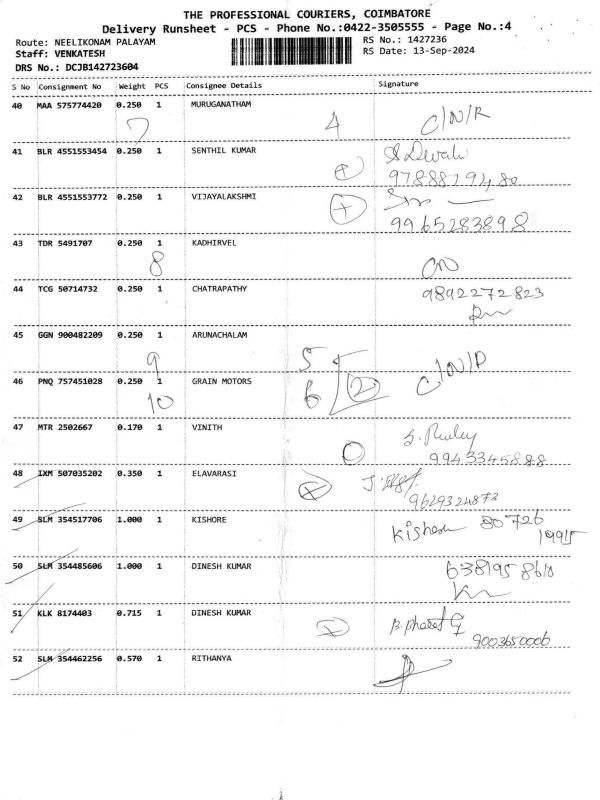 THE PROFESSIONAL COURIERS, COIMBATORE
Delivery Runsheet - PCS - Phone No.:0422-3505555 - Page No.:4
Route: NEELIKONAM PALAYAM RS No.: 1427236
Staff: VENKATESH RS Date: 13-Sep-2024
DRS No.: DCJB142723604
S No Consignment No Weight PCS Consignee Details Signature
40 MAA 575774420 0.250 1 MURUGANATHAM
7 4 C/N/R
41 BLR 4551553454 0.250 1 SENTHIL KUMAR
42 BLR 4551553772 0.250 1 VIJAYALAKSHMI
9965283898
43 TDR 5491707 0.250 1 KADHIRVEL
8
44 TCG 50714732 0.250 1 CHATRAPATHY 9892272823
45 GGN 900482209 0.250 1 ARUNACHALAM
9 5
46 PNQ 757451028 0.250 1 GRAIN MOTORS
10 6 2
47 MTR 2502667 0.170 1 VINITH
9943345888
48 IXM 507035202 0.350 1 ELAVARASI
9629324873
49 SLM 354517706 1.000 1 KISHORE 80726
19915
50 SLM 354485606 1.000 1 DINESH KUMAR
51 KLK 8174403 0.715 1 DINESH KUMAR
9003650006
52 SLM 354462256 0.570 1 RITHANYA